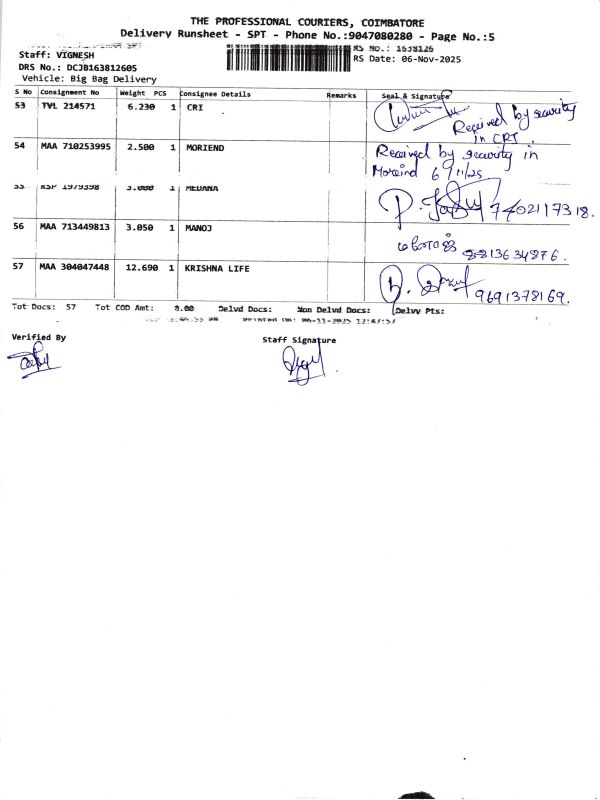 THE PROFESSIONAL COURIERS, COIMBATORE
Delivery Runsheet - SPT - Phone No.:9047080280 - Page No.:5
Staff: VIGNESH RS No.: 1638126
DRS No.: DCJB163812605 RS Date: 06-Nov-2025
Vehicle: Big Bag Delivery
S No Consignment No Weight PCS Consignee Details Remarks Seal & Signature
53 TVL 214571 6.230 1 CRI
Received by security
in CRI.
54 MAA 710253995 2.500 1 MORIEND Received by security in
Moreind 6/11/25
55 KSP 1979398 3.000 1 MEDANA
7402117318.
56 MAA 713449813 3.050 1 MANOJ
மனோஜ் 8813634876.
57 MAA 304047448 12.690 1 KRISHNA LIFE
9691378169.
Tot Docs: 57 Tot COD Amt: 0.00 Delvd Docs: Non Delvd Docs: Delvy Pts:
Printed On: 06-11-2025 12:47:57
Verified By Staff Signature